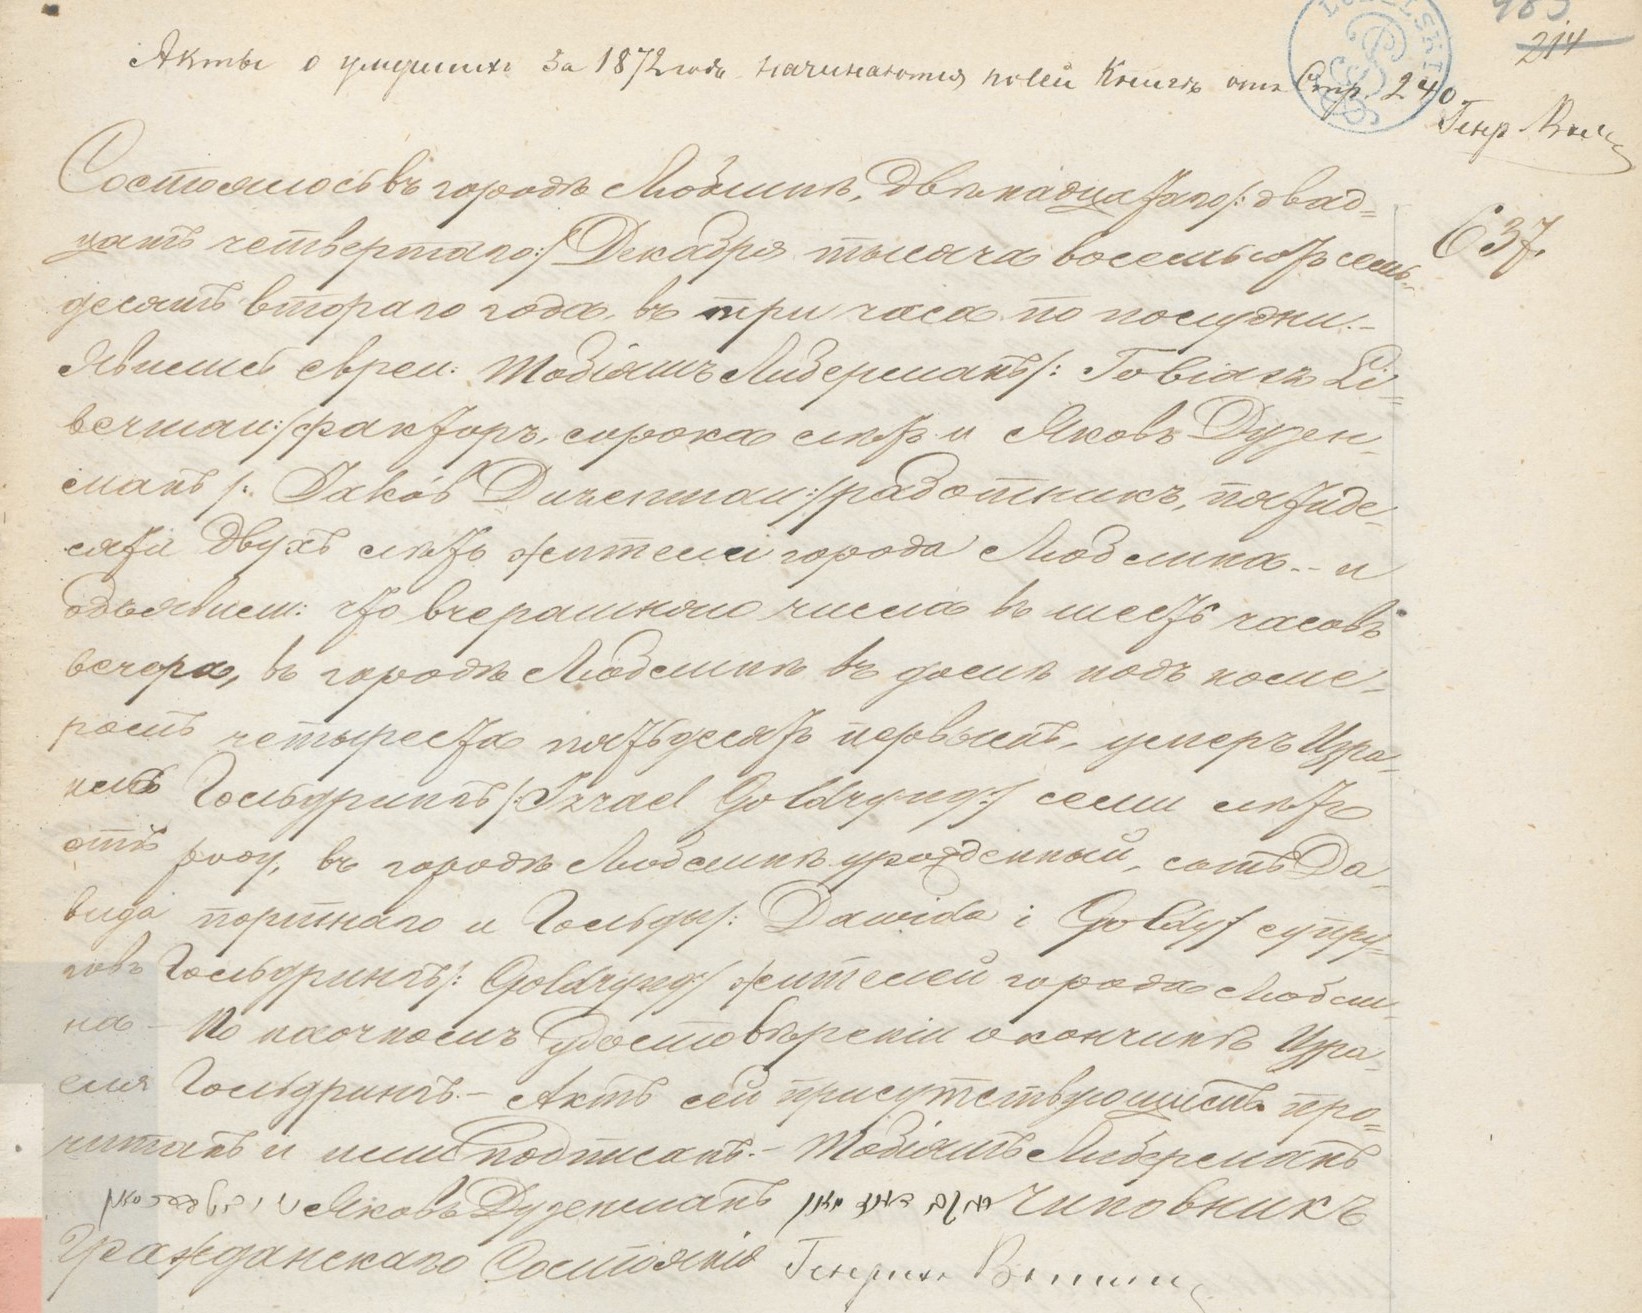 483
214
Акты о умершихъ за 1872 годъ начинаются въ сей Книгѣ отъ Стр. 240.
Генр
637.
Состоялось въ городѣ Люблинѣ, двѣнадцатаго /: двад=
цать четвертаго :/ Декабря тысяча восемьсотъ семь=
десятъ втораго года, въ три часа по полудни. –
Явились евреи: Тобіяшъ Либерманъ /: Tobiasz Li=
berman :/ факторъ, сорока лѣтъ и Яковъ Дуден=
манъ /: Jakób Dudenman :/ работникъ, пятиде=
сяти двухъ лѣтъ жители города Люблина. – и
объявили: что вчерашняго числа въ шесть часовъ
вечера, въ городѣ Люблинѣ въ домѣ подъ номе=
ромъ четыреста пятьдесятъ первымъ, умеръ Изра=
иль Гольдрингъ /: Izrael Goldryng :/ семи лѣтъ
отъ роду, въ городѣ Люблинѣ урожденный, сынъ Да=
вида портнаго и Гольды /: Dawida i Goldy :/ супру=
говъ Гольдрингъ /: Goldryng :/ жителей города Любли=
на – По наочномъ удостовѣреніи о кончинѣ Изра=
еля Гольдрингъ. – Актъ сей присутствующимъ про=
читанъ и ими подписанъ. – Тобіяшъ Либерманъ
Яковъ Дуденманъ Чиновникъ
Гражданскаго Состоянія Генрихъ